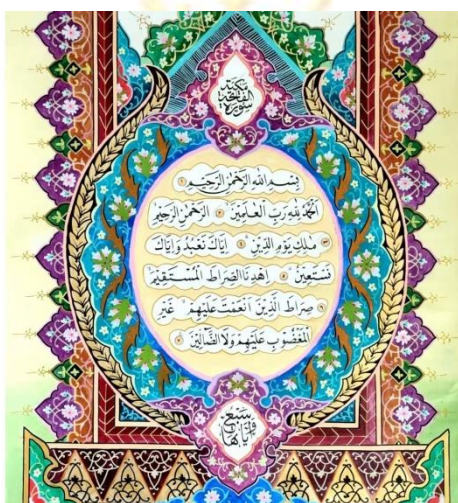 سورة الفاتحة
مكية
بِسْمِ اللهِ الرَّحْمٰنِ الرَّحِيْمِ ١
اَلْحَمْدُ لِلهِ رَبِّ الْعَالَمِيْنَ ٢ الرَّحْمٰنِ الرَّحِيْمِ
٣ مٰلِكِ يَوْمِ الدِّيْنِ ٤ اِيَّاكَ نَعْبُدُ وَاِيَّاكَ
نَسْتَعِيْنُ ٥ اِهْدِنَا الصِّرَاطَ الْمُسْتَقِيْمَ
٦ صِرَاطَ الَّذِيْنَ اَنْعَمْتَ عَلَيْهِمْ غَيْرِ
الْمَغْضُوْبِ عَلَيْهِمْ وَلَا الضَّآلِّيْنَ ٧
وهي سبع
آياتها